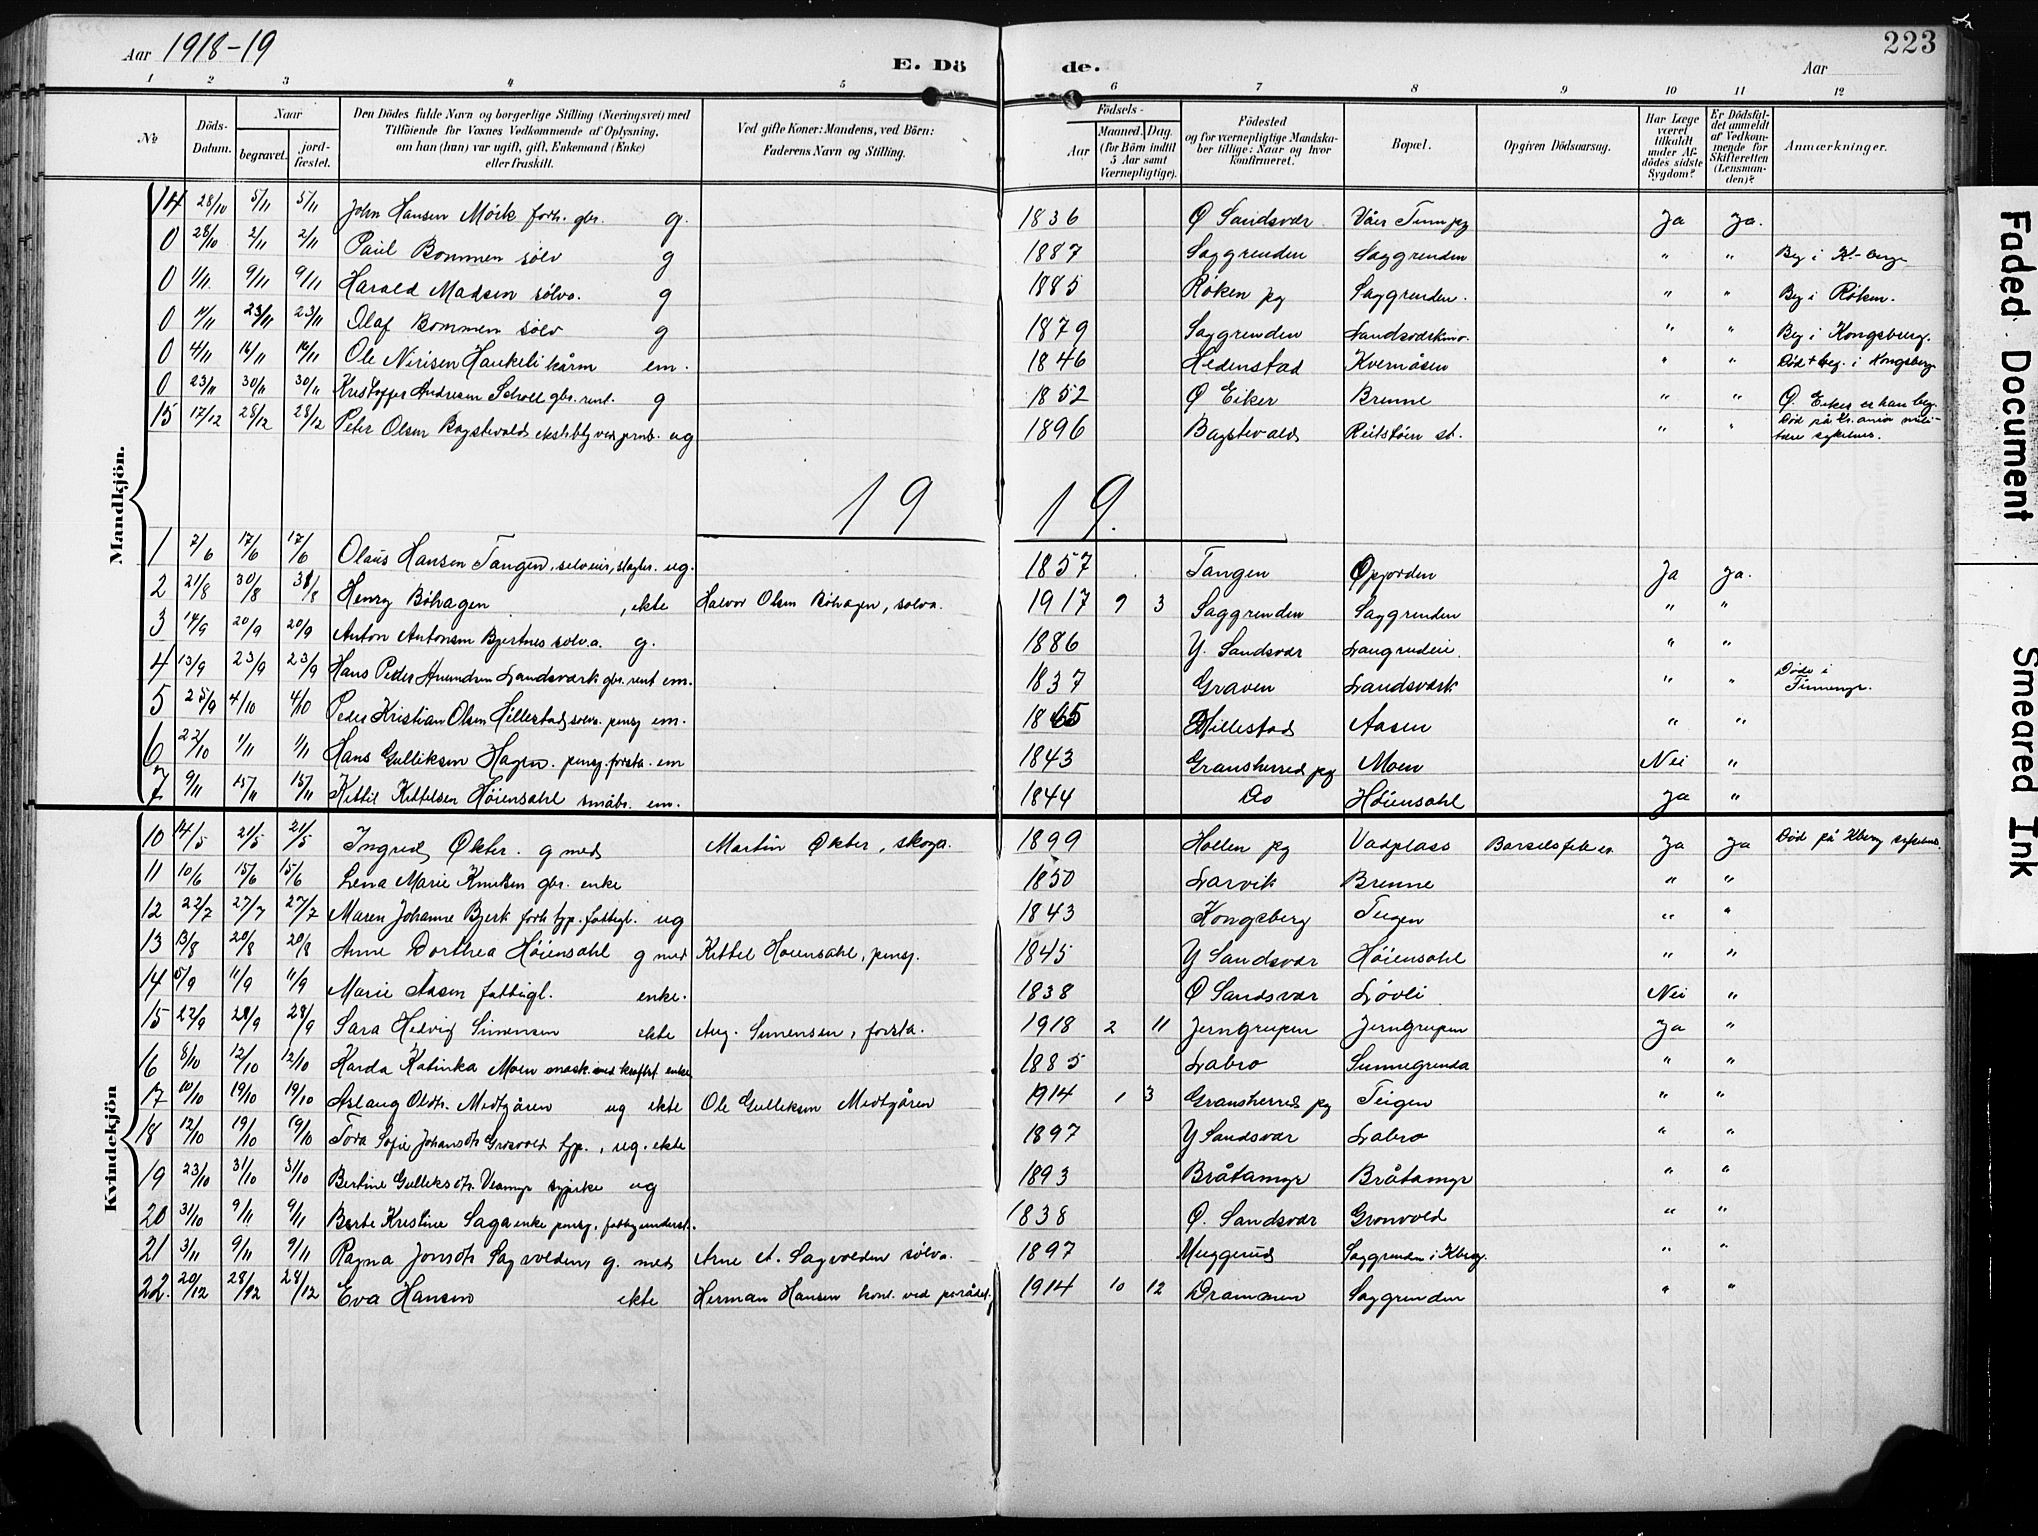 Aar 1918-19
E. Döde.
Aar
223
1 2 3 4 5 6 7 8 9 10 11 12
№
Döds-Datum.
Naar
begravet.
jord-fæstet.
Den Dödes fulde Navn og borgerlige Stilling (Næringsvei) med
Tilföiende for Voxnes Vedkommende af Oplysning,
om han (hun) var ugift, gift, Enkemand (Enke)
eller fraskilt.
Ved gifte Koner: Mandens, ved Börn:
Faderens Navn og Stilling.
Födsels-
Aar
Maaned. Dag.
(for Börn indtil
5 Aar samt
Værnepligtige).
Födested
og for værnepligtige Mandska-
ber tillige: Naar og hvor
Konfirmeret.
Bopæl.
Opgiven Dödsaarsag.
Har Læge
været
tilkaldt
under Af-
dödes sidste
Sygdom?
Er Dödsfal-
det anmeldt
af Vedkom-
mende for
Skifteretten
(Lensman-
den)?
Anmærkninger.
Mandkjön.
14 28/10 5/11 5/11 John Hansen Mörk forh. gbr. g. 1836 Ø Sandsvær Ja Ja.
0 28/10 2/11 2/11 Paul Bommen sölv g 1887 Saggrenden Saggrenden " " Beg i K-berg
0 1/11 9/11 9/11 Harald Madsen sölva. g 1885 Röken pg Saggrenden. " " Beg i Röken.
0 23/11 23/11 Olaf Bommen sölv g 1879 Saggrenden " " Beg i Kongsberg.
0 4/11 14/11 14/11 Ole Nirisen Haukeli kårm em. 1846 Hedenstad Kvernåsen " " Död + beg. i Kongsberg
0 23/11 30/11 30/11 Kristoffer Andresen g 1852 Ø Eiker Brenne " " Ø. Eiker er han beg.
15 17/12 28/12 28/12 Peter Olsen Bagstevold ug 1896 Bagstevold st. " " Död på Kr.ania
19 19.
1 2/6 17/6 17/6 Olaus Hansen Tangen, selveier, ug. 1857 Tangen Opjorden Ja Ja.
2 21/8 30/8 31/8 Henry Böhagen, ekte Halvor Olsen Böhagen, sölva. 1917 9 3 Saggrenden Saggrenden " "
3 14/9 20/9 20/9 Anton Antonsen Bjertnes sølv.a. g. 1886 Y. Sandsvær " "
4 13/9 23/9 23/9 Hans Peder Amundsen Landsværk gbr. em. 1837 Graven Landsværk " " Döde i
5 25/9 4/10 4/10 Peder Kristian Olsen Hillestad sølva. pensj em. 1865 Hillestad Aasen " "
6 22/10 1/11 1/11 Hans Gulliksen Hagen. pensj. forsta. em 1843 Gransherred pg Moen Nei "
7 9/11 15/11 15/11 Kittil Kittelsen Höiensahl småbr. em. 1844 Do Höiensahl Ja "
Kvindekjön
10 14/5 21/5 21/5 Ingred Økter. g med Martin Økter, skoga. 1899 Hollen pg Vadplass Barselsfeber Ja Ja Död på Kberg
11 10/6 15/6 15/6 Lena Marie Knutsen gbr. enke 1850 Larvik Brenne " "
12 22/7 27/7 27/7 Maren Johanne Bjerk forh tjp. fattigl. ug 1843 Kongsberg Teigen " "
13 13/8 20/8 20/8 Anne Dorthea Höiensahl g med Kittel Höiensahl, pensj. 1845 Y Sandsvær Höiensahl " "
14 5/9 11/9 11/9 Marie Aasen fattigl. enke. 1838 Ø Sandsvær Lövli Nei "
15 22/9 28/9 28/9 Sara Hedvig Simensen ekte Aug. Simensen, forsta. 1918 2 11 Jerngrupen Jerngrupen Ja "
16 8/10 12/10 12/10 Karda Katinka Moen enke 1885 Labro Sunnegrenda " "
17 10/10 19/10 19/10 Aslaug Oldtr. Midtgåren ug ekte Ole Gulliksen Midtgåren 1914 1 3 Gransherred pg Teigen " "
18 12/10 19/10 19/10 Tora Sofie Johansdtr tjp., ug. ekte 1897 Y Sandsvær Labro " "
19 23/10 31/10 31/10 Bertine Gulliksdtr. ug 1893 Bråtamyr Bråtamyr " "
20 31/10 9/11 9/11 Berte Kristine Saga enke pensj, 1838 Ø. Sandsvær Grönvold " "
21 3/11 9/11 9/11 Ragna Jonsdtr Sagvolden, g. med Arne A. Sagvolden sölva. 1897 Muggerud Saggrenden i Kberg. " "
22. 20/12 28/12 28/12 Eva Hansen ekte Herman Hansen 1914 10 12 Drammen Saggrenden " "
Faded Document
Smeared Ink